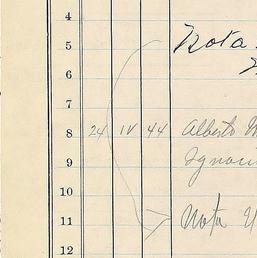 4
5 Nota
6
7
8 24 IV 44 Alberto
9
10
11 Nota
12